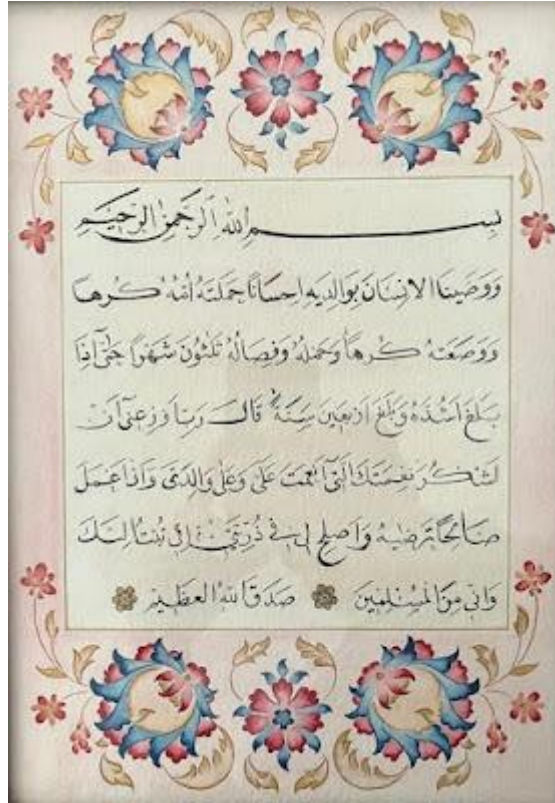 بِسْمِ اللهِ الرَّحْمٰنِ الرَّحِيمِ
وَوَصَّيْنَا الْاِنْسَانَ بِوَالِدَيْهِ اِحْسَانًا حَمَلَتْهُ اُمُّهُ كُرْهًا
وَوَضَعَتْهُ كُرْهًا وَحَمْلُهُ وَفِصَالُهُ ثَلٰثُونَ شَهْرًا حَتّٰى اِذَا
بَلَغَ اَشُدَّهُ وَبَلَغَ اَرْبَعِينَ سَنَةً قَالَ رَبِّ اَوْزِعْنِى اَنْ
اَشْكُرَ نِعْمَتَكَ الَّتِى اَنْعَمْتَ عَلَىَّ وَعَلٰى وَالِدَىَّ وَاَنْ اَعْمَلَ
صَالِحًا تَرْضٰيهُ وَاَصْلِحْ لِى فِى ذُرِّيَّتِى اِنِّى تُبْتُ اِلَيْكَ
وَاِنِّى مِنَ الْمُسْلِمِينَ صَدَقَ اللهُ الْعَظِيمُ